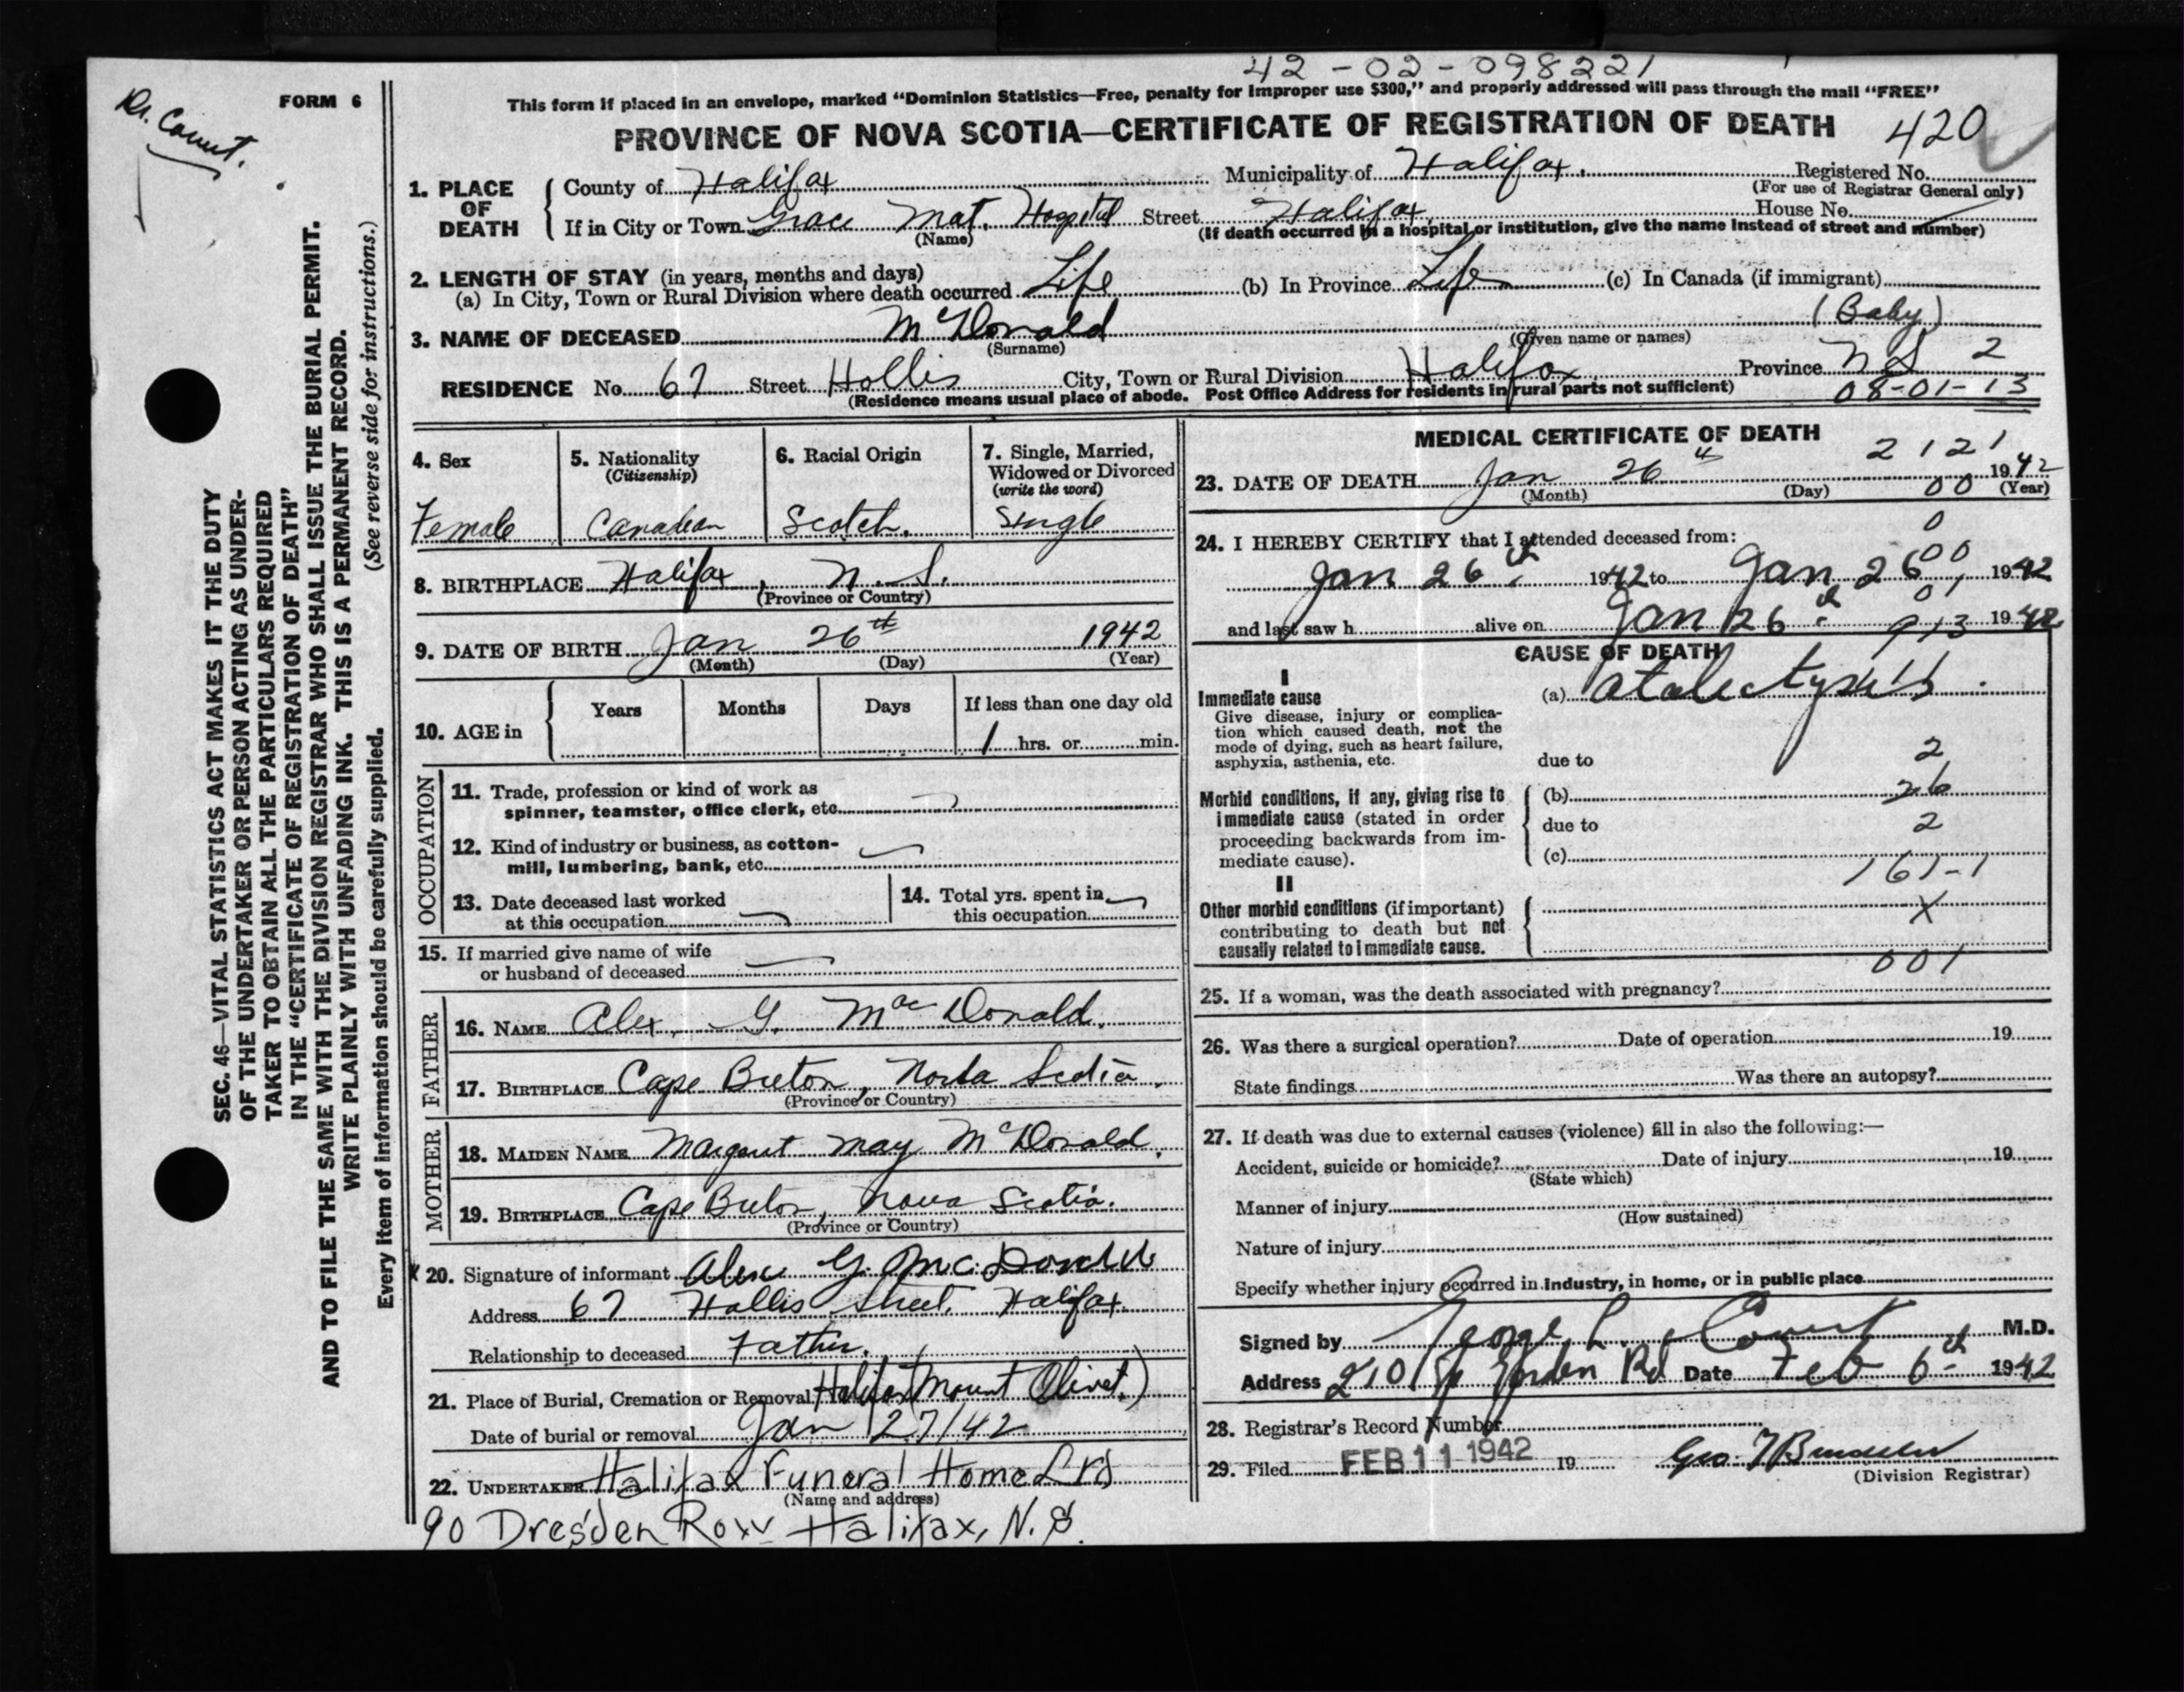 42-02-098221
This form if placed in an envelope, marked “Dominion Statistics—Free, penalty for improper use $300,” and properly addressed will pass through the mail “FREE”
FORM 6
Dr. Count.
PROVINCE OF NOVA SCOTIA—CERTIFICATE OF REGISTRATION OF DEATH 420
1. PLACE OF DEATH
County of Halifax Municipality of Halifax. Registered No.
(For use of Registrar General only)
If in City or Town Grace Mat. Hospital Street Halifax House No.
(Name) (If death occurred in a hospital or institution, give the name instead of street and number)
2. LENGTH OF STAY (in years, months and days)
(a) In City, Town or Rural Division where death occurred Life (b) In Province Life (c) In Canada (if immigrant)
3. NAME OF DECEASED McDonald (Baby)
(Surname) (Given name or names)
RESIDENCE No. 67 Street Hollis City, Town or Rural Division Halifax Province N S 2
(Residence means usual place of abode. Post Office Address for residents in rural parts not sufficient) 08-01-13
4. Sex
Female
5. Nationality
(Citizenship)
Canadian
6. Racial Origin
Scotch.
7. Single, Married, Widowed or Divorced
(write the word)
Single
8. BIRTHPLACE Halifax, N. S.
(Province or Country)
9. DATE OF BIRTH Jan 26th 1942
(Month) (Day) (Year)
10. AGE in Years Months Days If less than one day old
1 hrs. or min.
OCCUPATION
11. Trade, profession or kind of work as
spinner, teamster, office clerk, etc.
12. Kind of industry or business, as cotton-
mill, lumbering, bank, etc.
13. Date deceased last worked
at this occupation
14. Total yrs. spent in
this occupation
15. If married give name of wife
or husband of deceased
FATHER
16. NAME Alex. G. MacDonald.
17. BIRTHPLACE Cape Breton, Nova Scotia.
(Province or Country)
MOTHER
18. MAIDEN NAME Margaret May McDonald.
19. BIRTHPLACE Cape Breton, Nova Scotia.
(Province or Country)
20. Signature of informant Alex G. McDonald
Address 67 Hollis Street. Halifax.
Relationship to deceased Father.
21. Place of Burial, Cremation or Removal Halifax (Mount Olivet.)
Date of burial or removal Jan 27/42
22. UNDERTAKER Halifax Funeral Home Ltd
(Name and address)
90 Dresden Row Halifax, N.S.
MEDICAL CERTIFICATE OF DEATH
2121
23. DATE OF DEATH Jan 26th 1942
(Month) (Day) (Year)
00
0
24. I HEREBY CERTIFY that I attended deceased from:
00
Jan 26th 1942 to Jan 26 1942
01
and last saw h alive on Jan 26th 1942
913
CAUSE OF DEATH
I
Immediate cause
Give disease, injury or complica-
tion which caused death, not the
mode of dying, such as heart failure,
asphyxia, asthenia, etc.
(a)
due to 2
Morbid conditions, if any, giving rise to
immediate cause (stated in order
proceeding backwards from im-
mediate cause).
(b) 26
due to 2
(c)
161-1
II
Other morbid conditions (if important)
contributing to death but not
causally related to immediate cause.
X
001
25. If a woman, was the death associated with pregnancy?
26. Was there a surgical operation? Date of operation 19
State findings Was there an autopsy?
27. If death was due to external causes (violence) fill in also the following:—
Accident, suicide or homicide? Date of injury 19
(State which)
Manner of injury
(How sustained)
Nature of injury
Specify whether injury occurred in industry, in home, or in public place
Signed by George L. Count M.D.
Address 210 Rd Date Feb 6th 1942
28. Registrar's Record Number
29. Filed FEB 11 1942 19 Geo.
(Division Registrar)
SEC. 46—VITAL STATISTICS ACT MAKES IT THE DUTY
OF THE UNDERTAKER OR PERSON ACTING AS UNDER-
TAKER TO OBTAIN ALL THE PARTICULARS REQUIRED
IN THE “CERTIFICATE OF REGISTRATION OF DEATH”
AND TO FILE THE SAME WITH THE DIVISION REGISTRAR WHO SHALL ISSUE THE BURIAL PERMIT.
WRITE PLAINLY WITH UNFADING INK. THIS IS A PERMANENT RECORD.
(See reverse side for instructions.)
Every item of information should be carefully supplied.